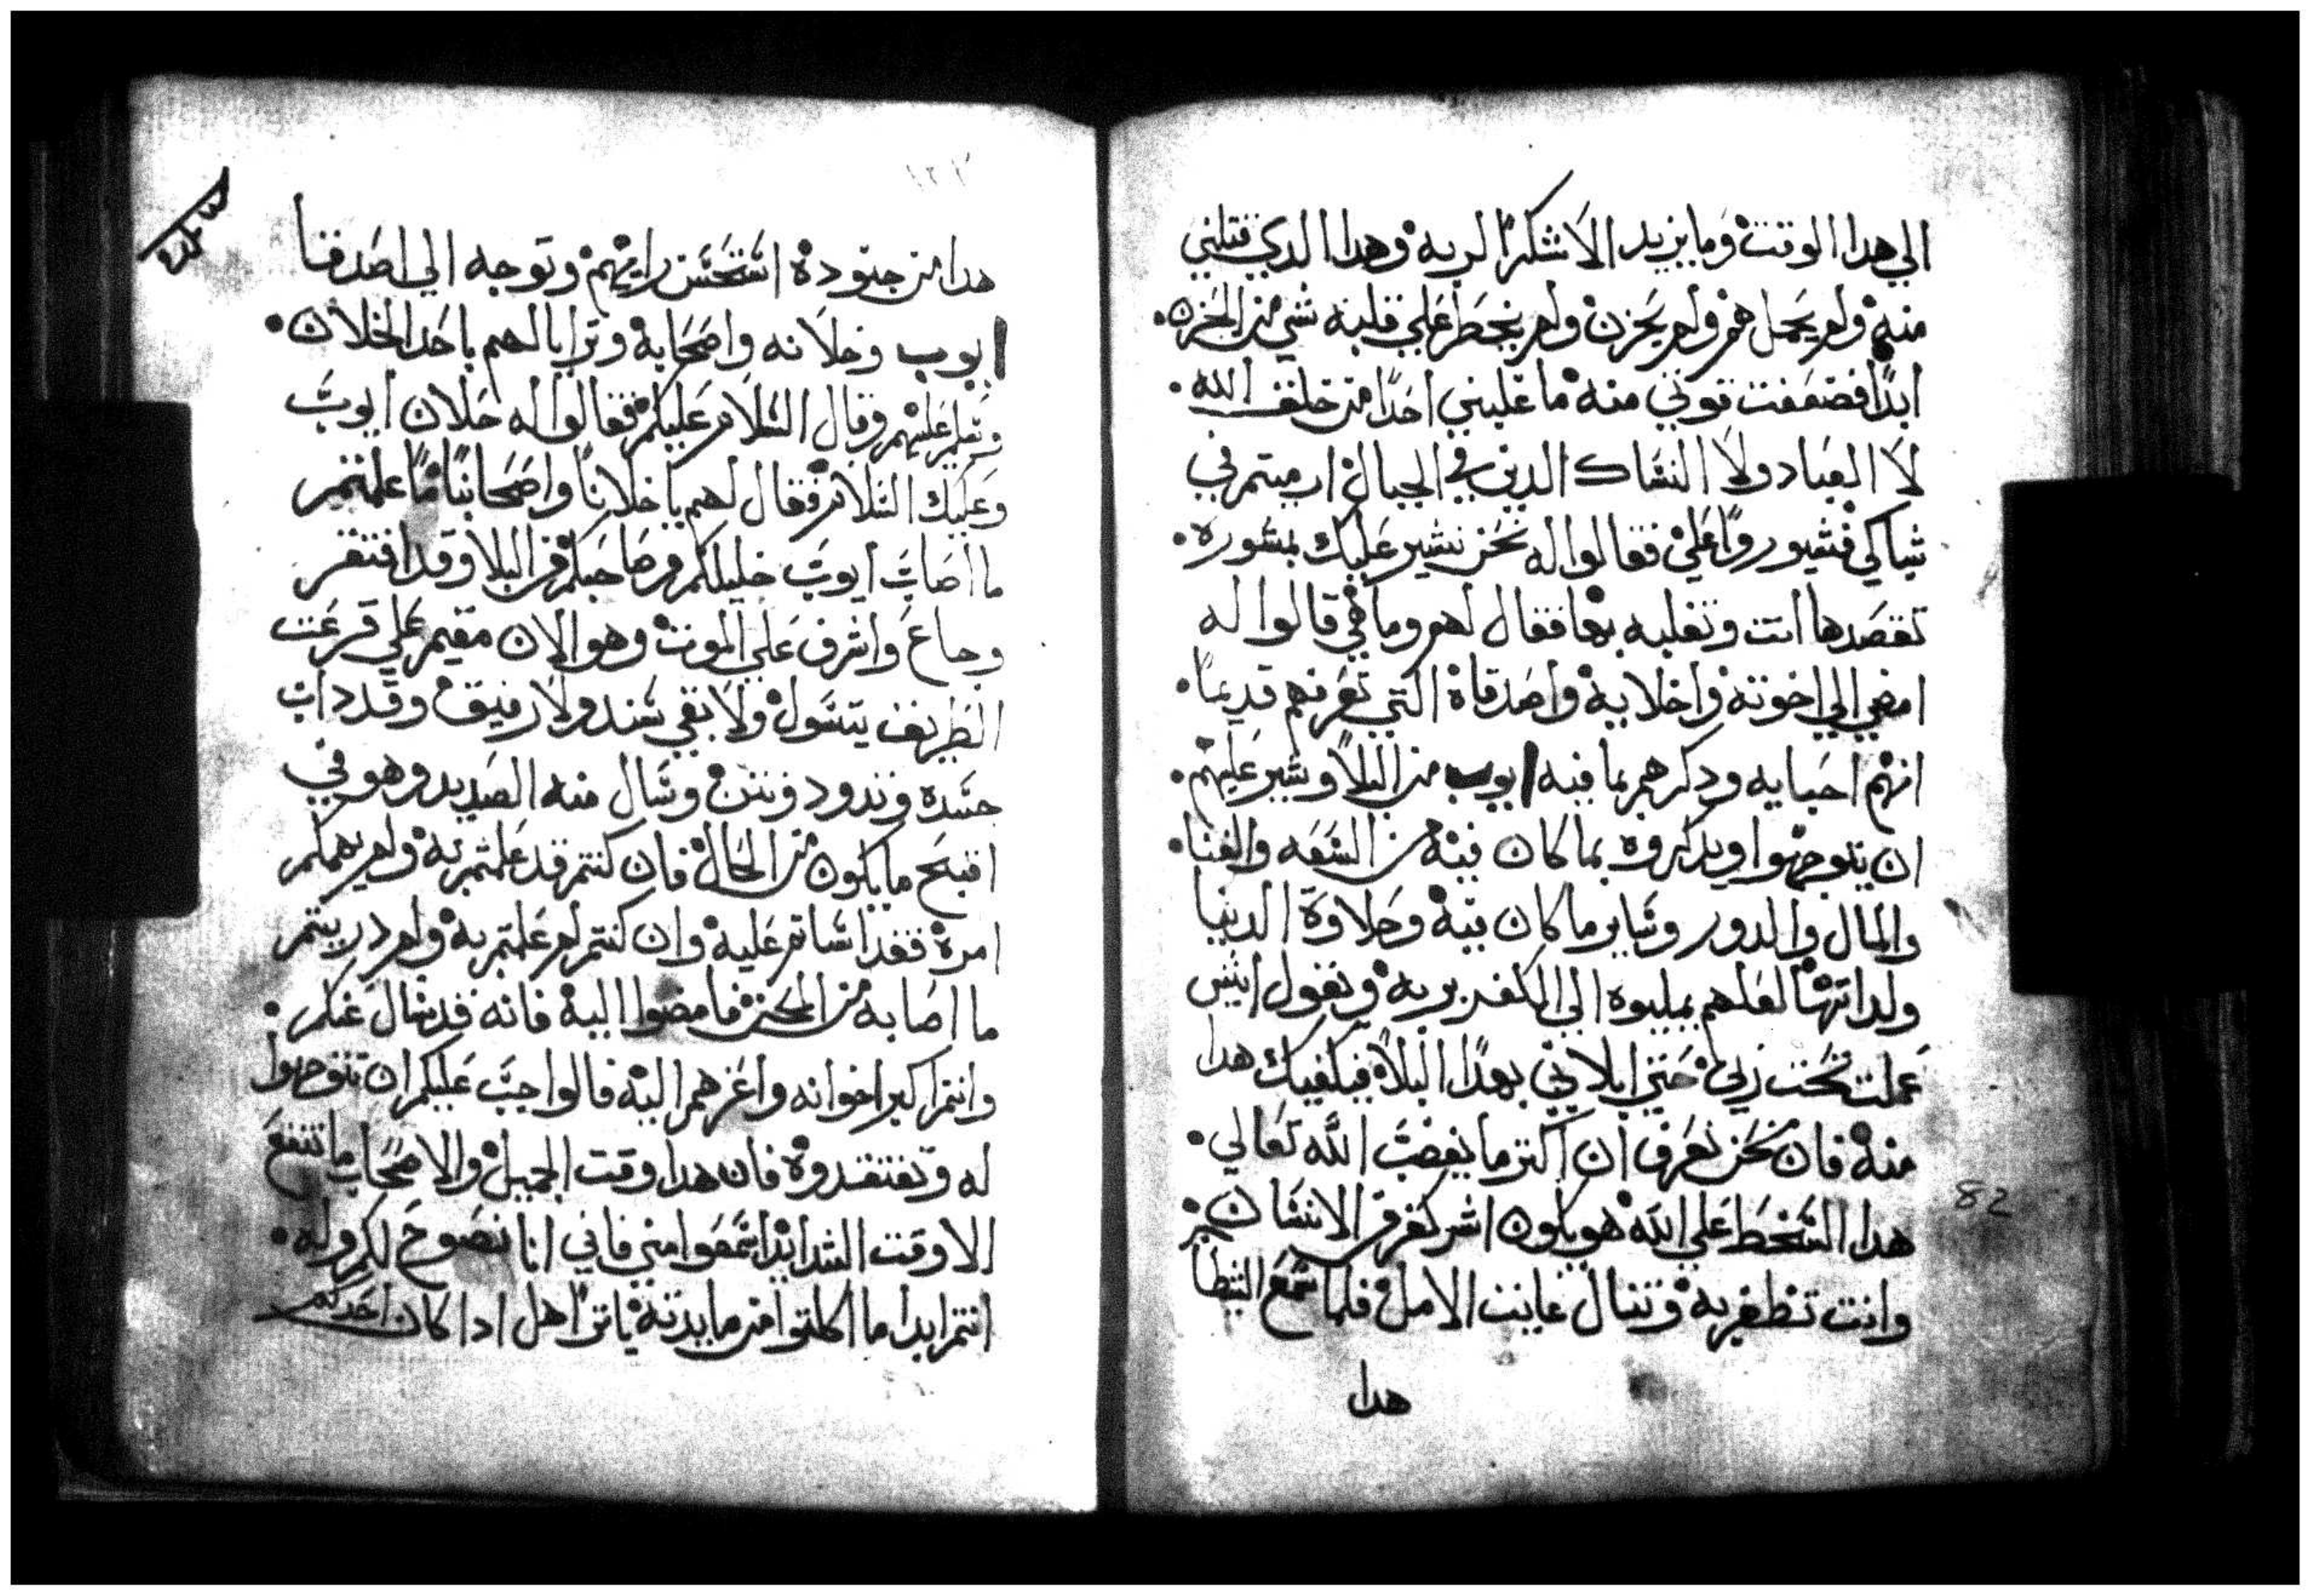 الي هدا الوقت وما يزيد الا شكرًا لربه وهدا الدي قتلني
منه ولم يحمل هم ولم يحزن ولم ينحط علي قلبه شي من الحزن.
ابدًا فضعفت قوتي منه ما غلبني احدًا من خلق الله.
لا العباد ولا النساك الدين في الجبال ارميتم في
شباكي فشيوروا علي فقالوا له نحن نشير عليك بمشوره.
تقصدها انت وتغلبه بها فقال لهم وما هي قالوا له
امضي الي اخوته واخلايه واصدقاة التي تعرفهم قديمًا.
انهم احبايه ودكرهم بما فيه ايوب من البلا وشير عليهم.
ان يتوجهوا ويدكروه بما كان فيه من السعه والغنا.
والمال والدور وساير ما كان فيه وحلاوة الدنيا
ولداتها لعلهم يميلوه الي الكفر بربه ويقول ايش
عملت تحت ربي حتي ابلاني بهدا البلا فيكفيك هدا
منه فان نحن نعرف ان اكتر ما يغضب الله تعالي.
هدا السخط علي الله هو يكون اشر كفر من الانسان
وانت تظفر به وتنال غايت الامل فلما سمع الشيطان
هدا
هدا من جنوده استحسن رايهم وتوجه الي اصدقا
ايوب وخلانه واصحابه وترايا لهم باحد الخلان.
وسلم عليهم وقال السلام عليكم فقالوا له خلان ايوب
وعليك السلام فقال لهم يا خلاننا واصحابنا ما علمتم
ما اصاب ايوب خليلكم وصاحبكم من البلا وقد افتقر
وجاع واشرف علي الموت وهو الان مقيم علي قرعت
الطريق يتسول ولا بقي سند ولا رفيق وقد داب
جسده وندود ونتن وسال منه الصديد وهو في
اقبح ما يكون من الحال فان كنتم قد علمتم به ولم يهمكم
امره فقد اساتم عليه وان كنتم لم علمتم به ولم دريتم
ما اصابه من المحن فامضوا اليه فانه قد سال عنكم.
وانتم اكبر اخوانه واعزهم اليه قالوا جب عليكم ان تتوجهوا
له وتفتقدوه فان هدا وقت الجميل والاصحاب ما تنفع
الا وقت الشدايد اسمعوا مني فاني انا نصوح لكم وله.
انتم ابدا ما اكلتوا من مايدته يا تراهل ادا كان احدكم
82